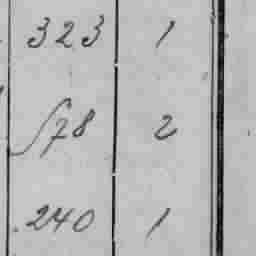 323 1
578 2
240 1